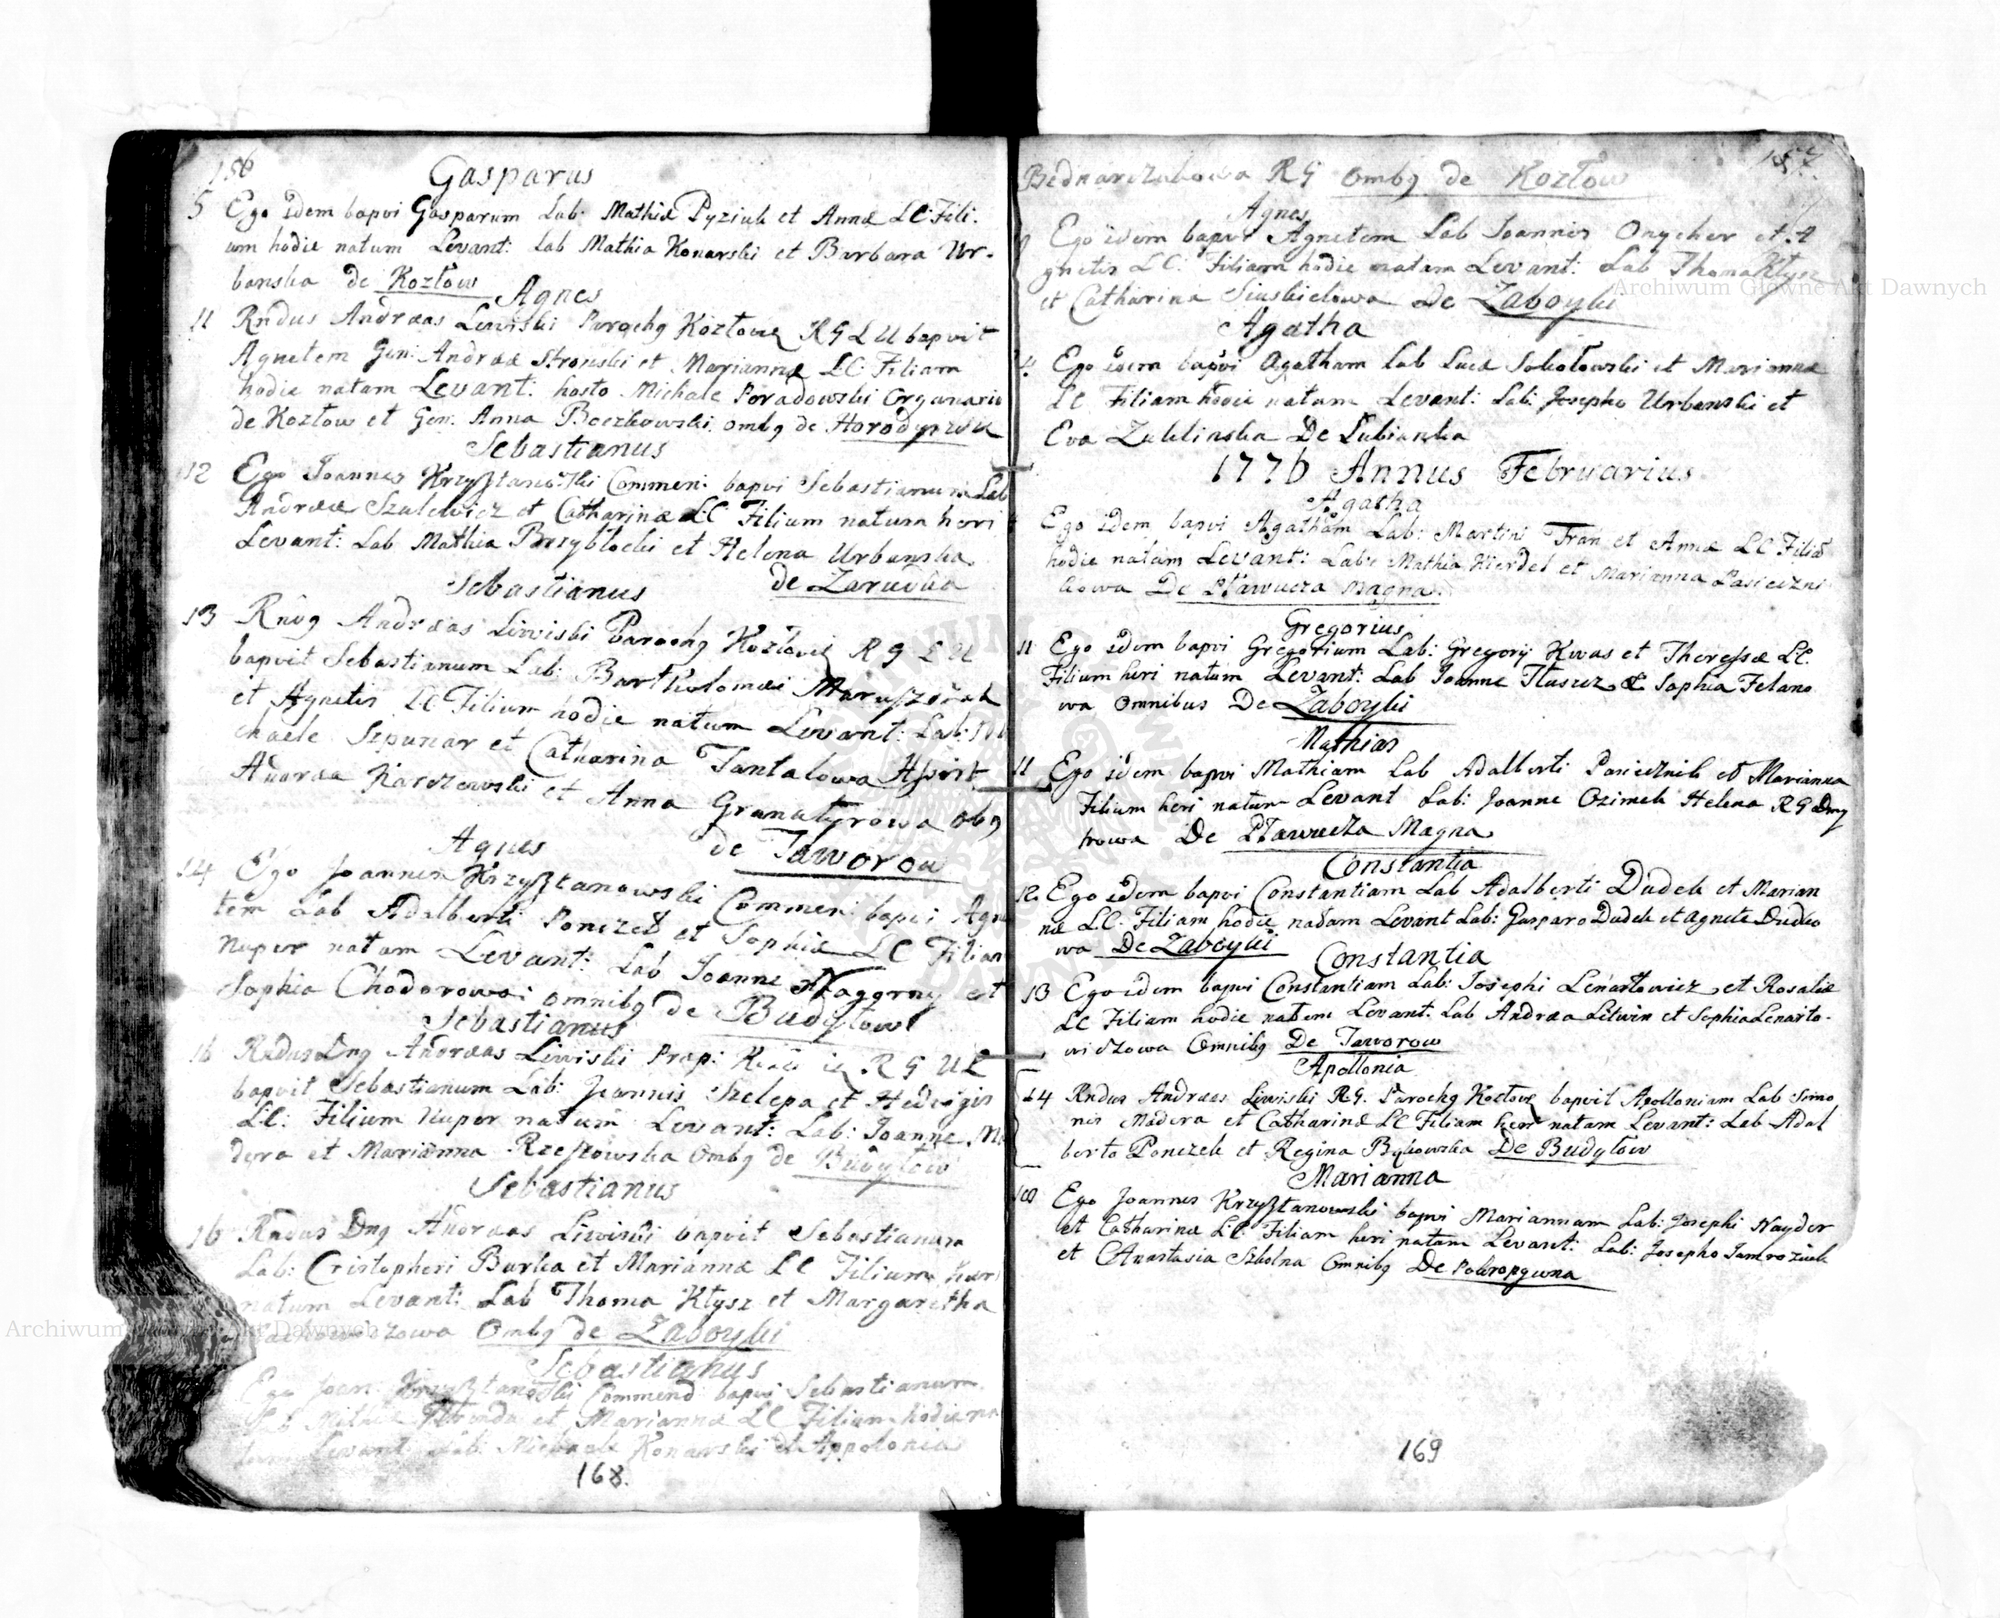 156
Gasparus
5 Ego idem bapvi Gasparum Lab: Mathiæ Pyziuk et Annæ LC: Fili.
um hodie natum Levant: Lab Mathia Konarski et Barbara Ur.
banska de Kozłow
Agnes
11 Rndus Andræas Liwiski Parochg Kozłovię RGLU bapvit
Agnetem Gen: Andreæ Stronski et Mariannæ LC: Filiam
hodie natam Levant: hosto Michale Poradowski Organario
de Kozłow et Gen: Anna Boczkowski ombg de
Sebastianus
12 Ego Joannes Commen: bapvi Sebastianum Lab
Andreæ Szulewicz et Catharinæ LC Filium natum heri
Levant: Lab Mathia Przybłocki et Helena Urbanska
de Zarudua
Sebastianus
13 Rndg Andræas Liwiski Parochg Kozłovię R G L U
bapvit Sebastianum Lab: Bartholomæi
et Agnetis LC Filium hodie natum Levant: Lab:
chaele Szpunar et Catharina Tantalowa
Andræa Karczewski et Anna Granatyrowa obg
de Jaworow
Agnes
14 Ego Joannes Krzyßtanowski Commen: bapvi Agne
tem Lab Adalberti Ponczek et Sophiæ LC Filiam
nuper natam Levant: Lab Joanne et
Sophia Chodorowa: omnibg de Budyłow
Sebastianus
16 Rndus Dng Andræas Liwiski Prap: R G U L
bapvit Sebastianum Lab: Joannis Szelepa et Hedvigis
LC: Filium nuper natum Levant: Lab: Joanne
dera et Marianna Rzeßowska Ombg de Budyłow
Sebastianus
16 Rndus Dng Andræas Liwiski bapvit Sebastianum
Lab: Cristopheri Burka et Mariannæ LC Filium heri
natum Levant: Lab Thoma Kłysz et Margaretha
Ombg de Zaboyki
Sebastianus
Ego Joan: Krzyßtanowski Commend bapvi Sebastianum
et Mariannæ LC Filium hodie na
tum Levant: Lab: Michaele Konarski et Appolonia
168.
157.
Bednarczukowa RG ombg de Kozłow
Agnes
Ego idem bapvi Agnetem Lab Joannis Onycher et A
gnetis LC: Filiam hodie natam Levant: Lab Thoma Kłysz
et Catharina Siuskielowa De Zaboyki
Agatha
Ego idem bapvi Agatham Lab Lucæ Sokołowski et Mariannæ
LC Filiam hodie natam Levant: Lab: Josepho Urbanski et
Eva Zuklinska De Lubianka
1776 Annus Februarius
Agatha
Ego idem bapvi Agatham Lab: Martini Fran et Annæ LC Filiã
hodie natam Levant: Lab: Mathia Kierdel et Marianna Pasieczni
kowa De Pławucza Magna
Gregorius
11 Ego idem bapvi Gregorium Lab: Gregorij Kwas et Theressæ LC.
Filium heri natum Levant: Lab Joanne Tłuscz & Sophia Felano
wa Omnibus De Zaboyki
Mathias
11 Ego idem bapvi Mathiam Lab Adalberti Pasiecznik et Marianna
Filium heri natum Levant Lab: Joanne Ozimek Helena RG Dmy
trowa De Pławucza Magna
Constantia
12. Ego idem bapvi Constantiam Lab Adalberti Dudek et Marian
næ LC: Filiam hodie nadam Levant Lab: Gasparo Dudek et Agnete Dudko
wa De Zaboyki
Constantia
13 Ego idem bapvi Constantiam Lab: Josephi Lenartowicz et Rosaliæ
LC Filiam hodie natam Levant: Lab Andræa Litwin et Sophia Lenarto.
wiczowa Omnibg De Jaworow
Apollonia
14 Rndus Andræas Liwiski RG. Parochg Kozłovię bapvit Apolloniam Lab Simo
nis Madera et Catharinæ LC Filiam heri natam Levant: Lab Adal
berto Ponczek et Regina Bykowska De Budyłow
Marianna
18 Ego Joannes Krzyßtanowski bapvi Mariannam Lab: Josephi Nayder
et Catharinæ LC: Filiam heri natam Levant: Lab: Josepho Jamroziuk
et Anastasia Szkolna Omnibg De Pokropywna
169
Archiwum Główne Akt Dawnych
Archiwum Główne Akt Dawnych